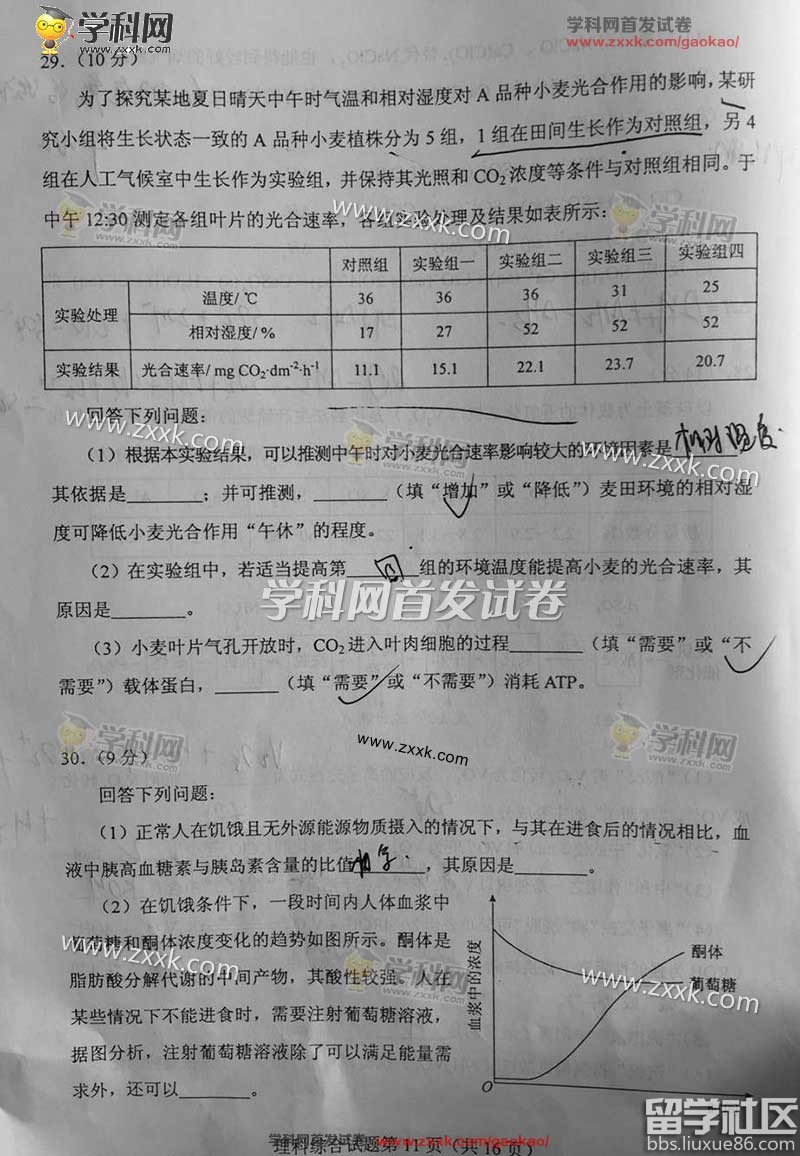 学科网 www.zxxk.com
学科网首发试卷
www.zxxk.com/gaokao/
29.（10 分）
为了探究某地夏日晴天中午时气温和相对湿度对 A 品种小麦光合作用的影响，某研
究小组将生长状态一致的 A 品种小麦植株分为 5 组，1 组在田间生长作为对照组，另 4
组在人工气候室中生长作为实验组，并保持其光照和 CO₂ 浓度等条件与对照组相同。于
中午 12:30 测定各组叶片的光合速率，各组实验处理及结果如表所示：
对照组 实验组一 实验组二 实验组三 实验组四
实验处理 温度/ ℃ 36 36 36 31 25
相对湿度/ % 17 27 52 52 52
实验结果 光合速率/ mg CO₂·dm⁻²·h⁻¹ 11.1 15.1 22.1 23.7 20.7
回答下列问题：
（1）根据本实验结果，可以推测中午时对小麦光合速率影响较大的环境因素是 相对湿度
其依据是________；并可推测，________（填“增加”或“降低”）麦田环境的相对湿
度可降低小麦光合作用“午休”的程度。
（2）在实验组中，若适当提高第________组的环境温度能提高小麦的光合速率，其
原因是________。
学科网首发试卷
（3）小麦叶片气孔开放时，CO₂ 进入叶肉细胞的过程________（填“需要”或“不
需要”）载体蛋白，________（填“需要”或“不需要”）消耗 ATP。
30.（9 分）
回答下列问题：
（1）正常人在饥饿且无外源能源物质摄入的情况下，与其在进食后的情况相比，血
液中胰高血糖素与胰岛素含量的比值________，其原因是________。
（2）在饥饿条件下，一段时间内人体血浆中
葡萄糖和酮体浓度变化的趋势如图所示。酮体是
脂肪酸分解代谢的中间产物，其酸性较强。人在
某些情况下不能进食时，需要注射葡萄糖溶液，
据图分析，注射葡萄糖溶液除了可以满足能量需
求外，还可以________。
血浆中的浓度
酮体
葡萄糖
O
学科网首发试卷 www.zxxk.com/gaokao/
理科综合试题第 11 页（共 16 页）
留学社区
bbs.liuxue86.com